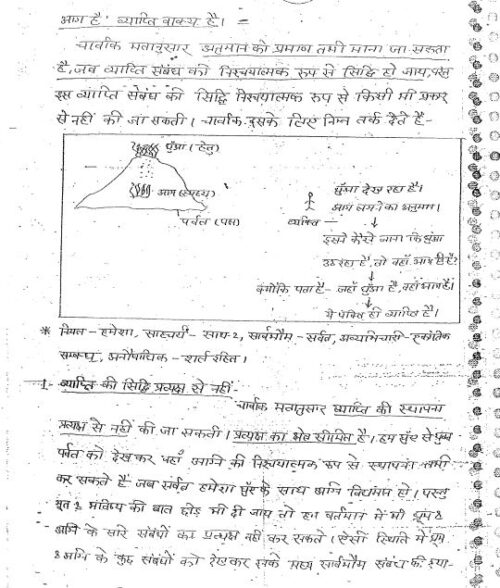 आग है' व्याप्ति वाक्य है।
चार्वाक मतानुसार अनुमान को प्रमाण तभी माना जा सकता
है, जब व्याप्ति संबंध की निश्चयात्मक रूप से सिद्धि हो जाए, परन्तु
इस व्याप्ति संबंध की सिद्धि निश्चयात्मक रूप से किसी भी प्रकार
से नहीं की जा सकती। चार्वाक इसके लिए निम्न तर्क देते हैं-
धुँआ (हेतु)
आग (साध्य)
पर्वत (पक्ष)
धुँआ देख रहा है।
आग लगने का अनुमान।
व्यक्ति
इसने कैसे जाना कि धुंआ
उठ रहा है, तो वहाँ आग ही है?
क्योंकि पता है- जहाँ धुँआ है, वहाँ आग है।
ये पंक्ति ही व्याप्ति है।
* नियत - हमेशा, साहचर्य - साथ-2, सार्वभौम - सर्वत्र, अव्यभिचारी - एकांतिक
सम्बन्ध, अनौपाधिक - शर्त रहित।
1- व्याप्ति की सिद्धि प्रत्यक्ष से नहीं-
चार्वाक मतानुसार व्याप्ति की स्थापना
प्रत्यक्ष से नहीं की जा सकती। प्रत्यक्ष का क्षेत्र सीमित है। हम धुँए से युक्त
पर्वत को देखकर वहाँ अग्नि की निश्चयात्मक रूप से स्थापना तभी
कर सकते हैं जब सर्वत्र हमेशा धुँए के साथ अग्नि विद्यमान हो। परन्तु
भूत व भविष्य की बात छोड़ भी दी जाए तो हम वर्तमान में भी धूम व
अग्नि के सारे संबंधों का प्रत्यक्ष नहीं कर सकते। ऐसी स्थिति में धूम
व अग्नि के कुछ संबंधों को देखकर उनके मध्य सार्वभौम संबंध की